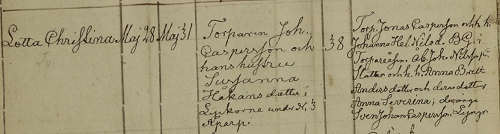 Lotta Christina Maj 28 Maj 31
Torparen Joh.
Caspersson och
hans hustru
Susanna
Håkans dotter i
Lyckorne under N. 3
38
Torp. Jonas Caspersson och h. h.
Johanna
Torparesn. Ab. Joh.
och h. h. Anna Britt
Anders dotter och deras dotter
Anna Severina, drengen
Sven Johan Caspersson